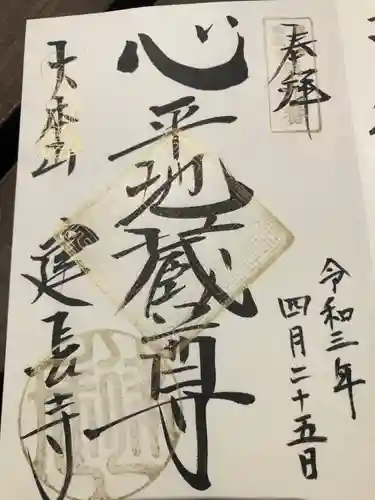 奉拝
令和三年
四月二十五日
心平地蔵尊
大本山
建長寺